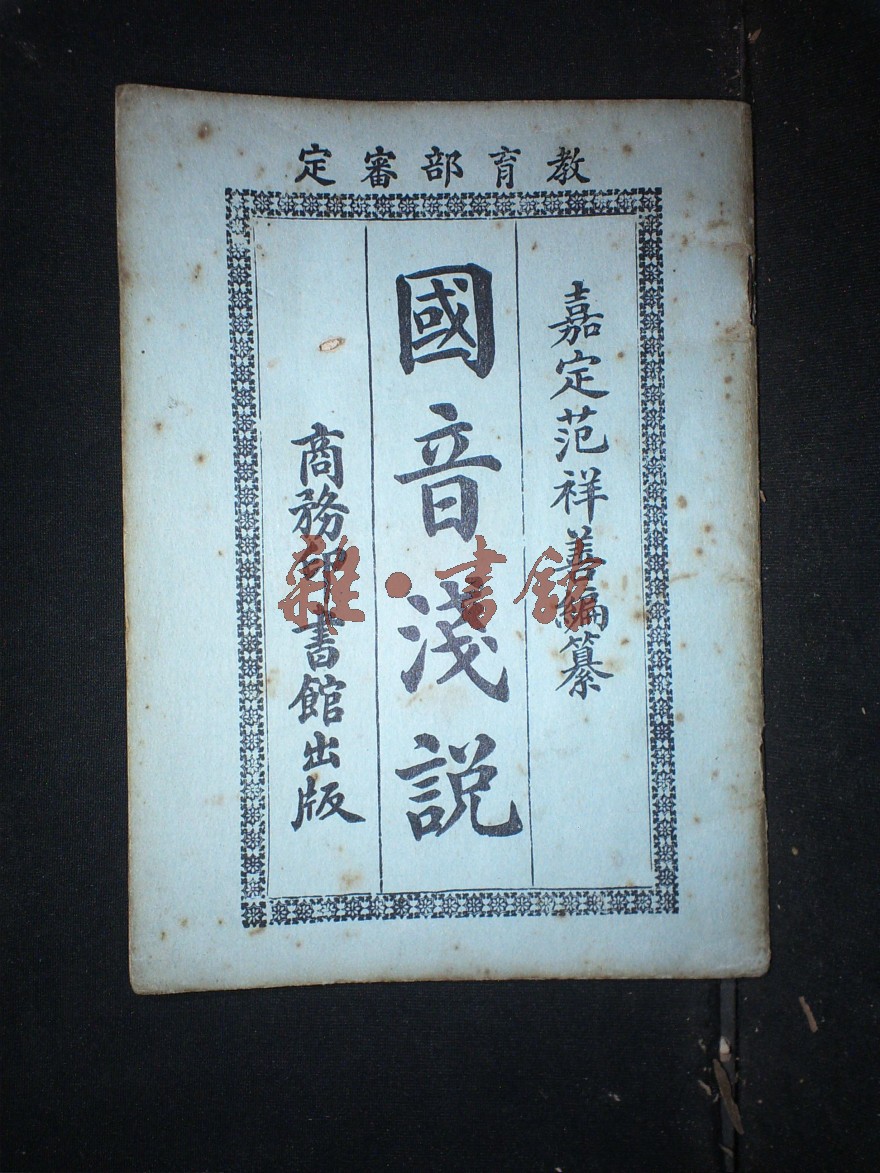 教育部審定
嘉定范祥善編纂
國音淺說
商務印書館出版
雜·書館